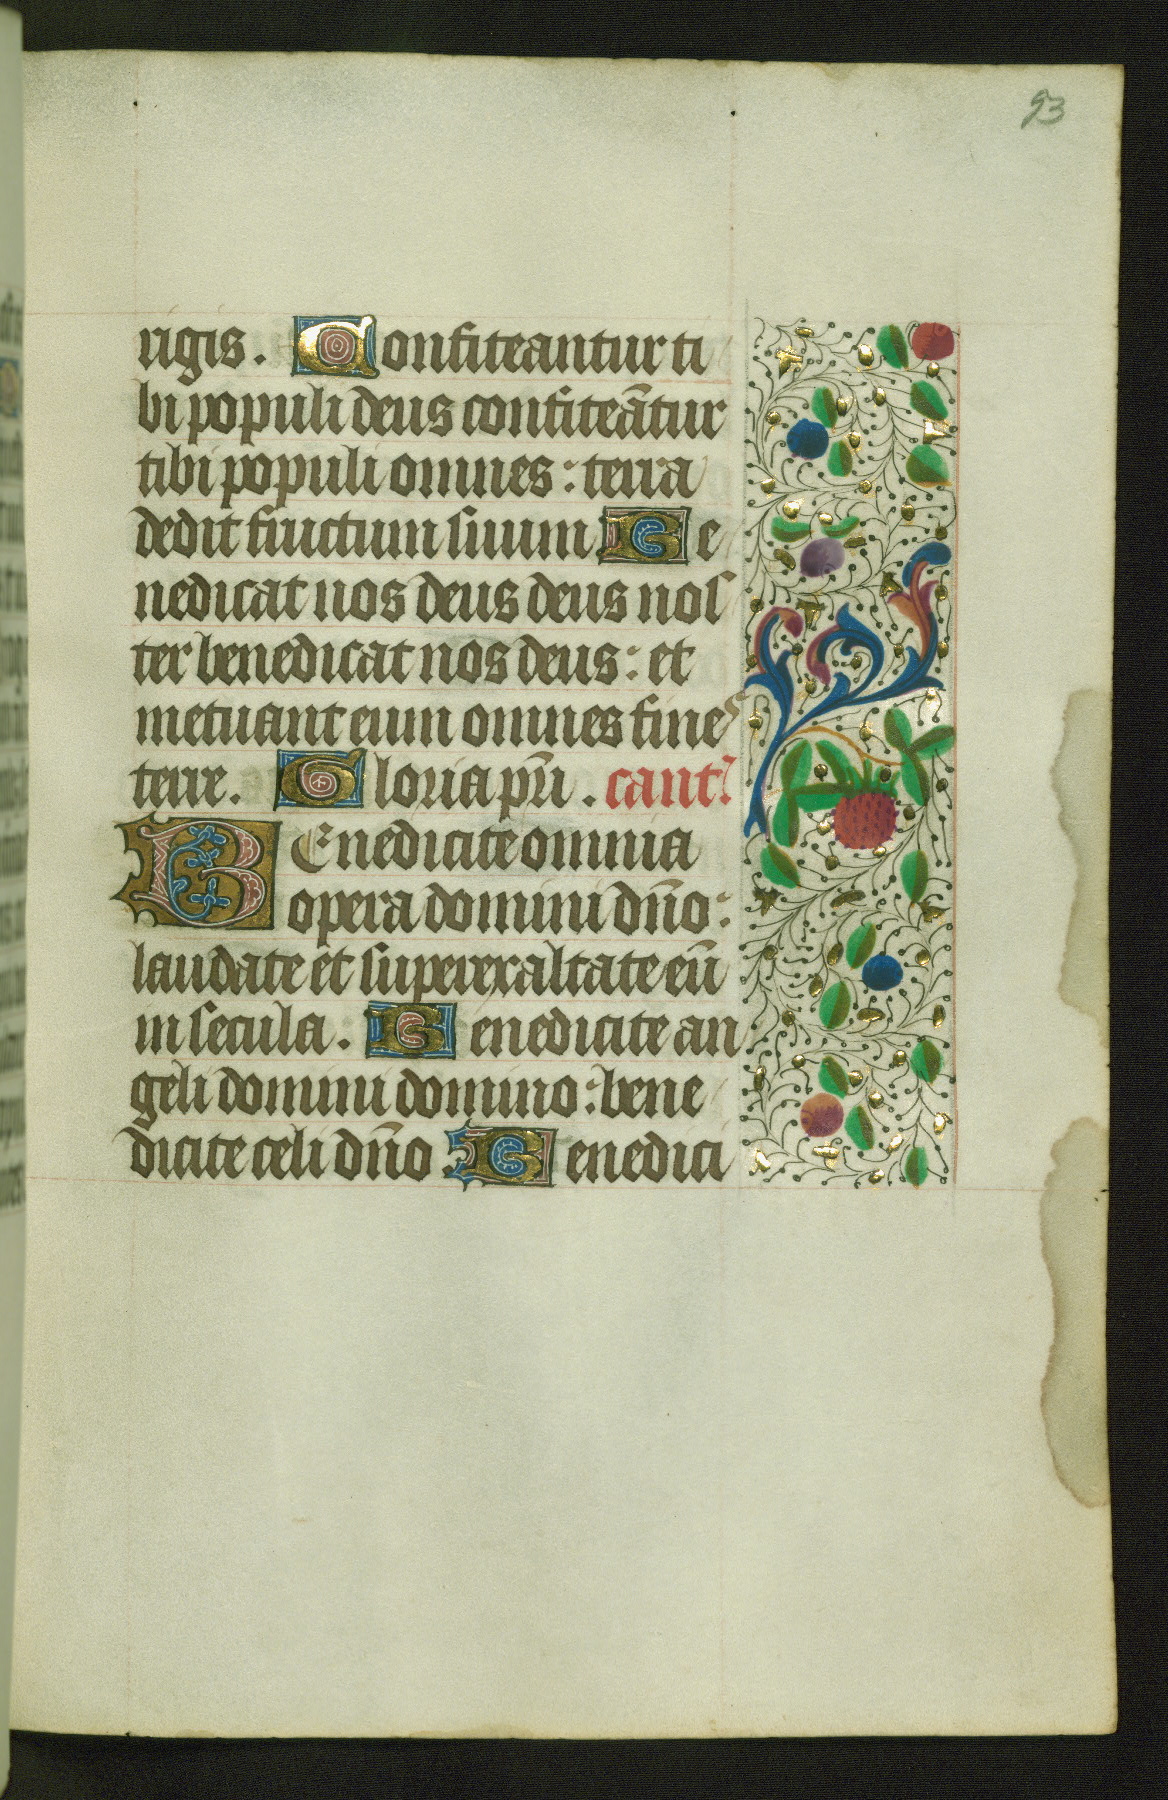 93
rigis. Confiteantur ti
bi populi deus confiteātur
tibi populi omnes: terra
dedit fructum suum Be
nedicat nos deus deus nos
ter benedicat nos deus: et
metuant eum omnes fines
terre. Gloria pr̄i. cant᷒
BEnedicite omnia
opera domini dn̄o:
laudate et superexaltate eū
in secula. Benedicite an
geli domini domino: bene
dicite celi dn̄o. Benedici